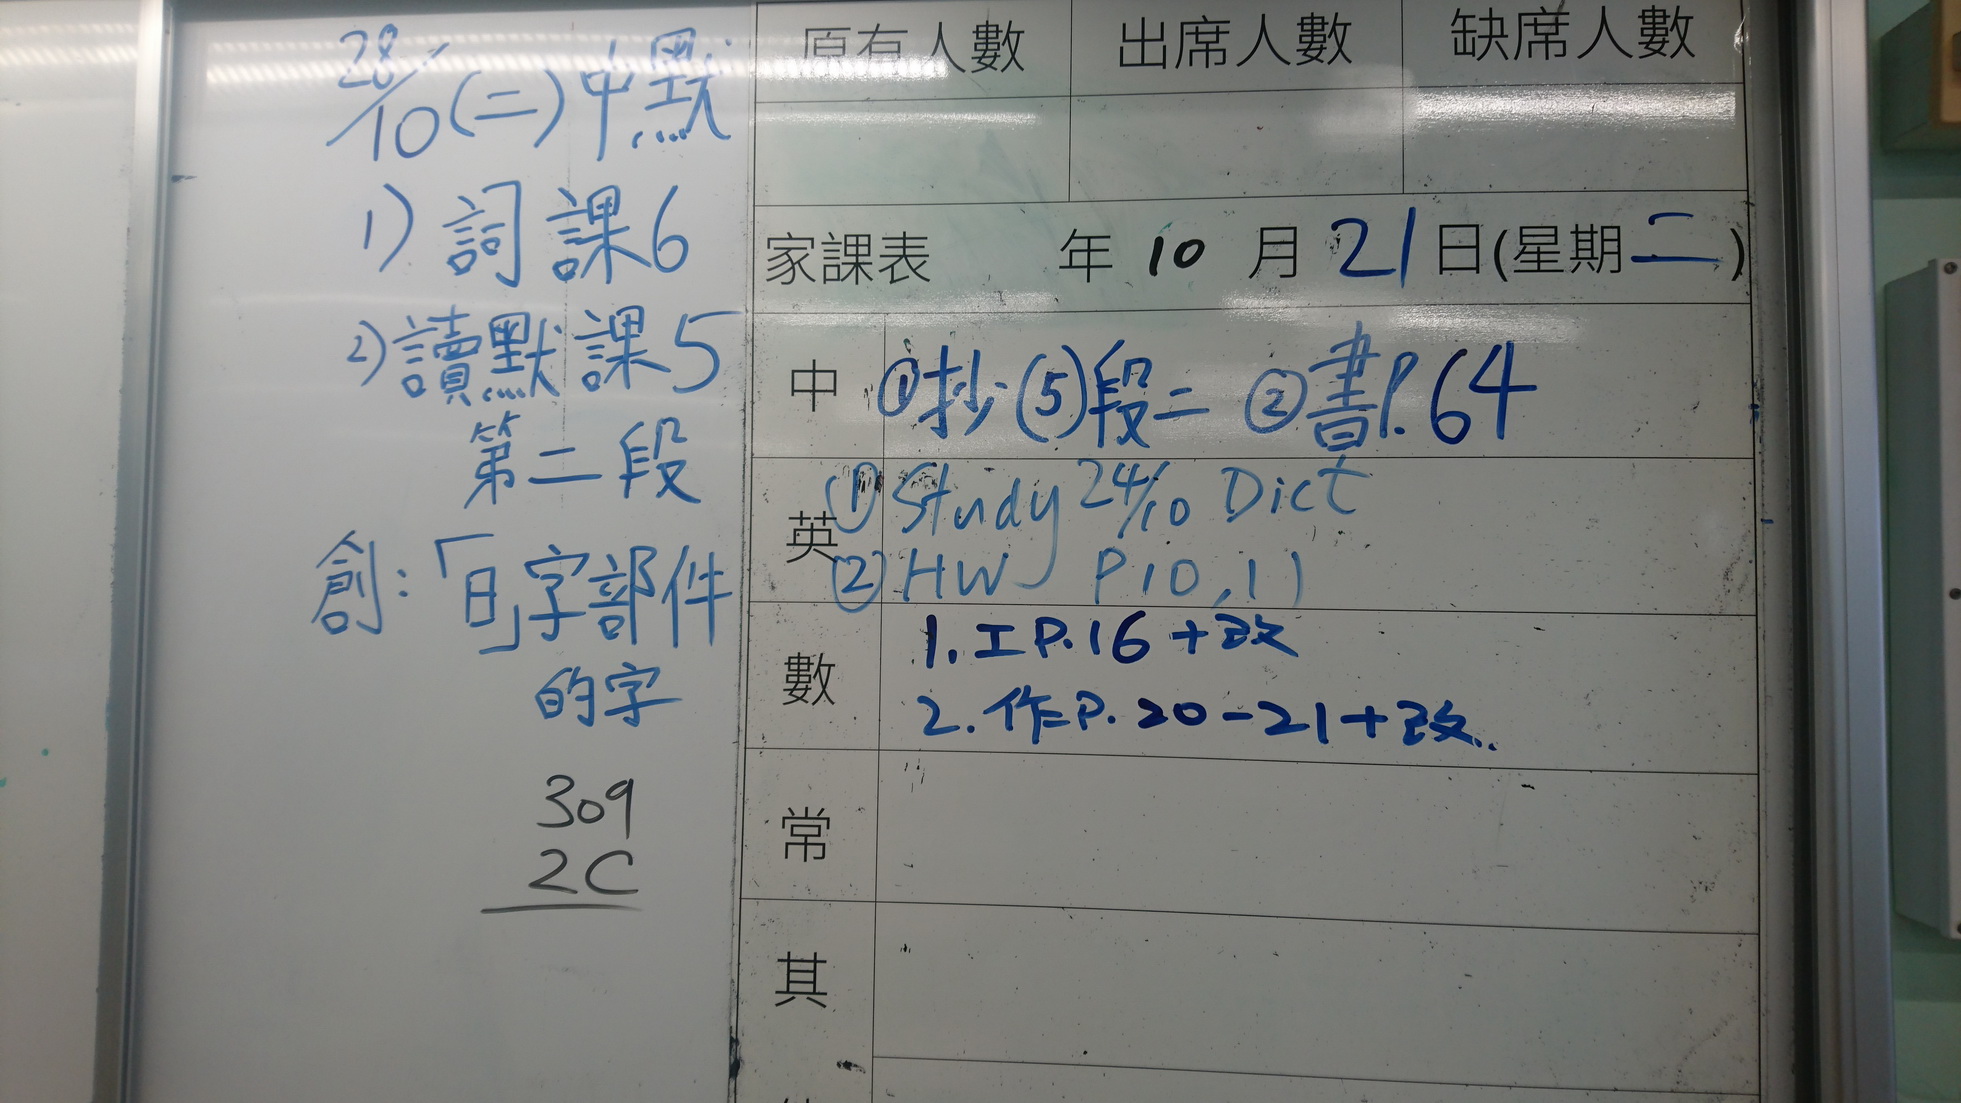 28/10(二)中默
1) 詞 課6
2) 讀默 課5
第二段
創:「日」字部件
的字
309
2C
原有人數 出席人數 缺席人數
家課表 年 10 月 21 日(星期二)
中 ①抄(5)段二 ②書P.64
英 ①Study 24/10 Dict
②HW P10,11
數 1. 工P.16+改
2. 作P.20-21+改
常
其